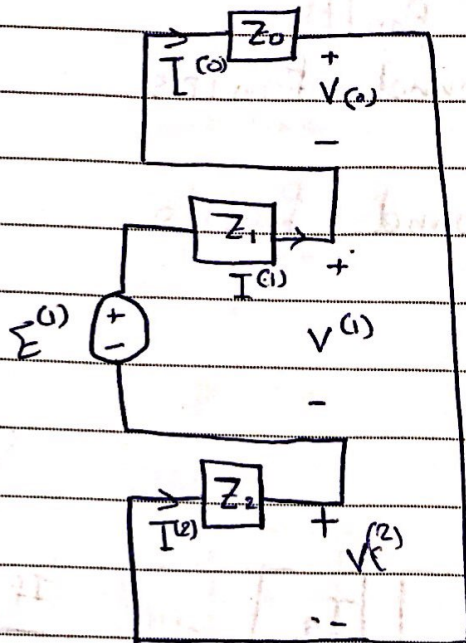 Z0
I(0)
+
V(0)
−
Z1
I(1)
+
E(1)
+
−
V(1)
−
Z2
I(2)
+
V(2)
−